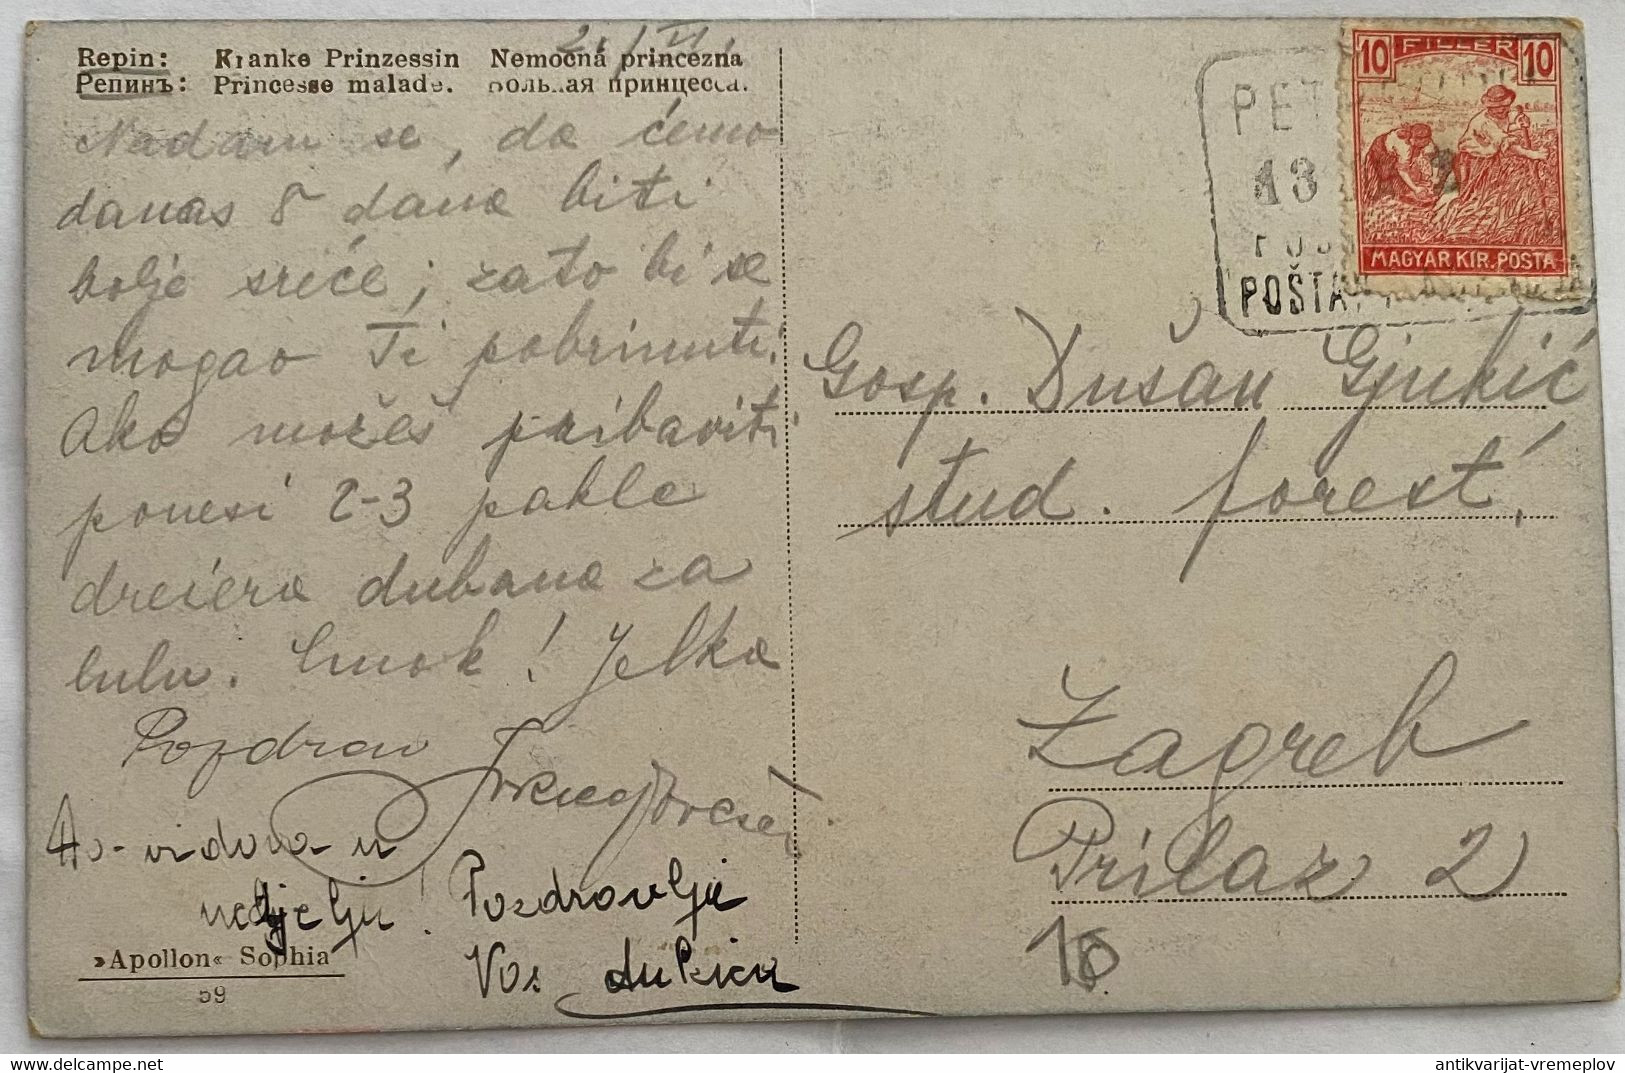 2. /VI.
Repin: Kranke Prinzessin Nemocná princezna
Репинъ: Princesse malade. Больная принцесса.
Nadam se, da ćemo
danas 8 dana biti
bolje sreće; zato bi se
mogao Ti pobrinuti.
Ako možeš pribaviti
ponesi 2-3 pakle
dreiera duhana za
lulu. Cmok! Jelka
Pozdrav
nedjelju! Pozdravlja
Vas
»Apollon« Sophia
59
10 FILLÉR 10
MAGYAR KIR. POSTA
PET
13
POŠTA
Gosp. Dušan Gjukić
stud. forest.
Zagreb
Prilaz 2
delcampe.net
antikvarijat-vremeplov